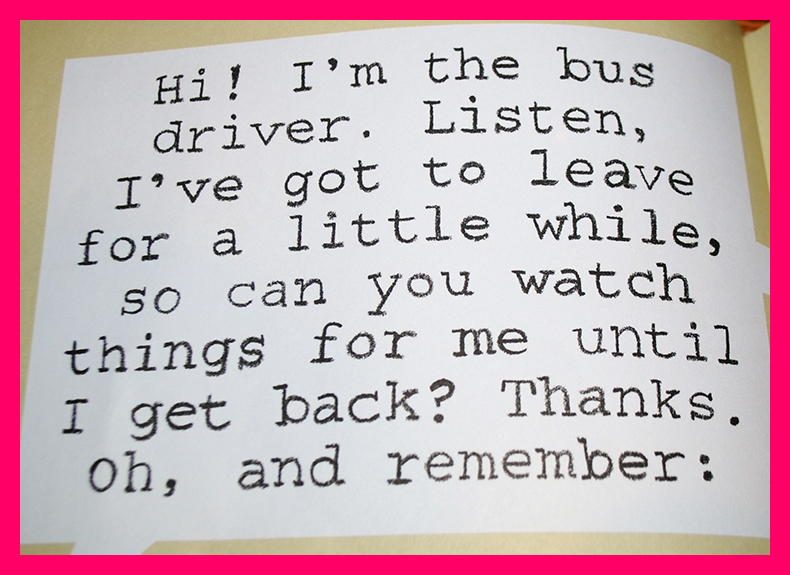 Hi! I'm the bus
driver. Listen,
I've got to leave
for a little while,
so can you watch
things for me until
I get back? Thanks.
Oh, and remember: